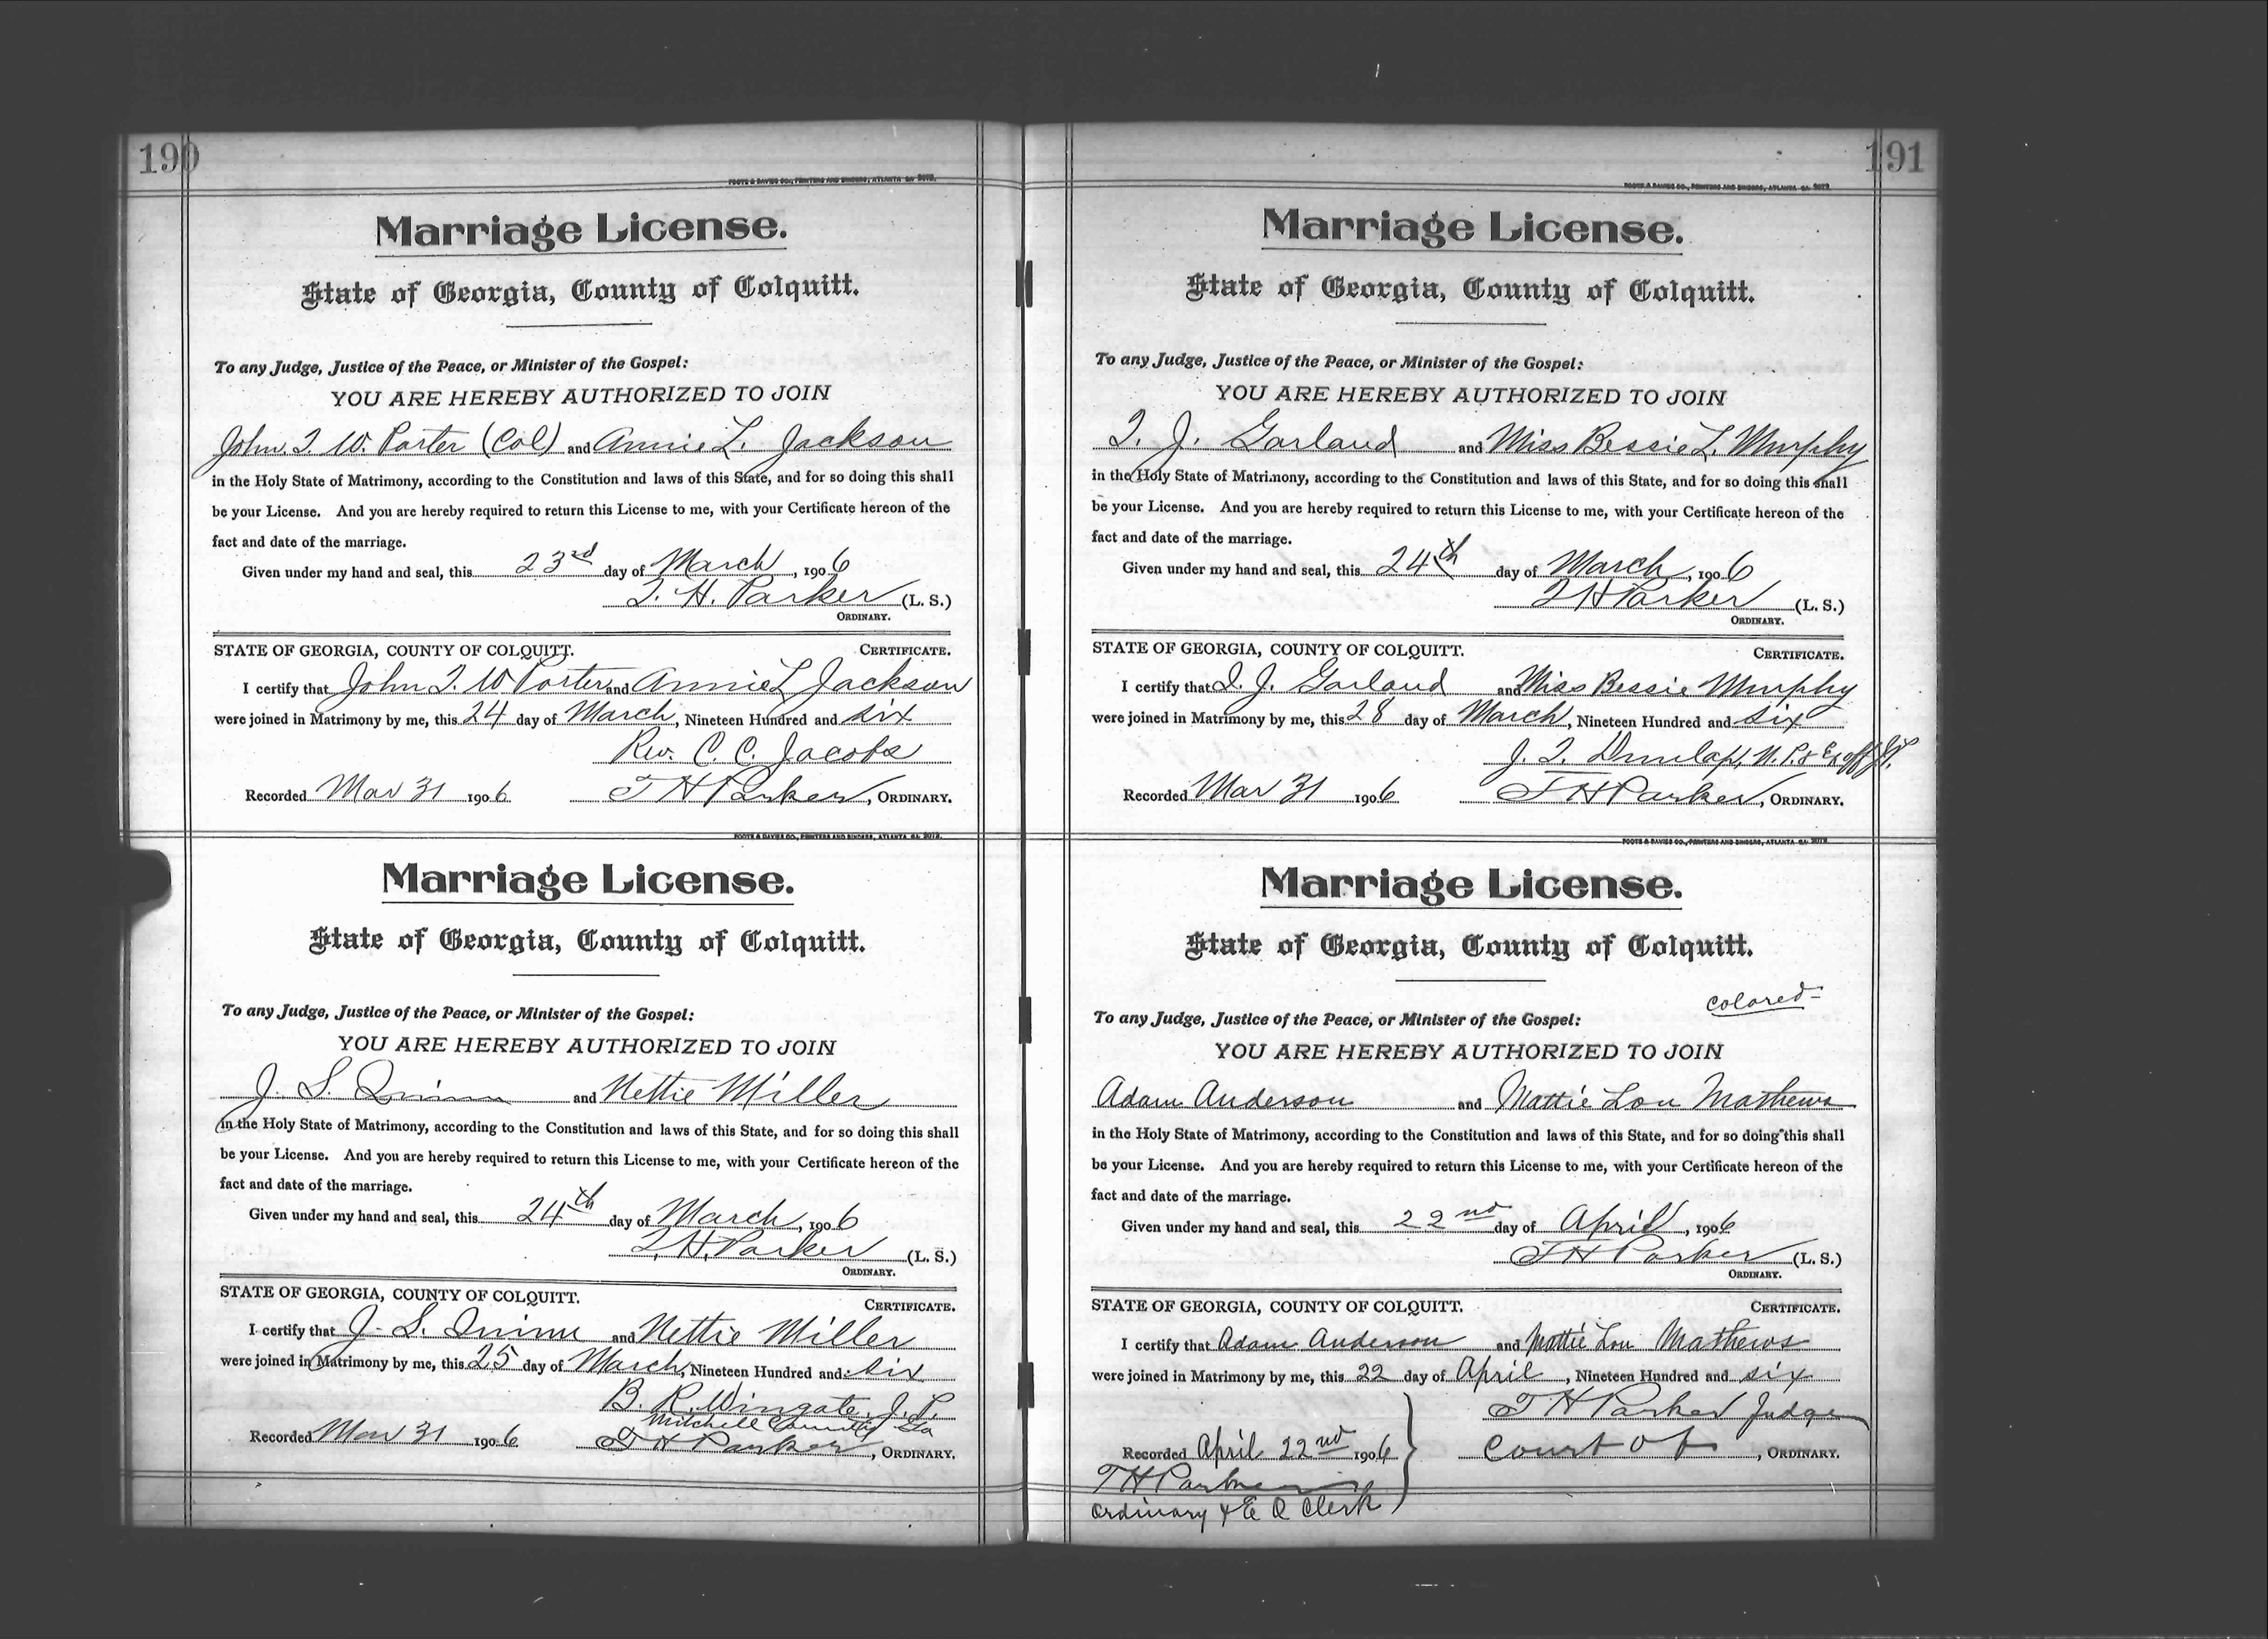 190
FOOTE & DAVIES CO., PRINTERS AND BINDERS, ATLANTA GA. 2072.
Marriage License.
State of Georgia, County of Colquitt.
To any Judge, Justice of the Peace, or Minister of the Gospel:
YOU ARE HEREBY AUTHORIZED TO JOIN
John. T. W. Porter (Col) and Annie L. Jackson
in the Holy State of Matrimony, according to the Constitution and laws of this State, and for so doing this shall
be your License. And you are hereby required to return this License to me, with your Certificate hereon of the
fact and date of the marriage.
Given under my hand and seal, this 23rd day of March, 1906
T. H. Parker (L. S.)
ORDINARY.
STATE OF GEORGIA, COUNTY OF COLQUITT. CERTIFICATE.
I certify that John T. W Porter and Annie L Jackson
were joined in Matrimony by me, this 24 day of March, Nineteen Hundred and six
Rev. C. C. Jacobs
Recorded Mar 31 1906 T H Parker, ORDINARY.
FOOTE & DAVIES CO., PRINTERS AND BINDERS, ATLANTA GA. 2072.
Marriage License.
State of Georgia, County of Colquitt.
To any Judge, Justice of the Peace, or Minister of the Gospel:
YOU ARE HEREBY AUTHORIZED TO JOIN
J. S. Quinn and Nettie Miller
in the Holy State of Matrimony, according to the Constitution and laws of this State, and for so doing this shall
be your License. And you are hereby required to return this License to me, with your Certificate hereon of the
fact and date of the marriage.
Given under my hand and seal, this 24th day of March, 1906
T. H. Parker (L. S.)
ORDINARY.
STATE OF GEORGIA, COUNTY OF COLQUITT. CERTIFICATE.
I certify that J. S. Quinn and Nettie Miller
were joined in Matrimony by me, this 25 day of March, Nineteen Hundred and six
B. R. Wingate, J. P.
Mitchell County Ga
Recorded Mar 31 1906 T H Parker, ORDINARY.
191
FOOTE & DAVIES CO., PRINTERS AND BINDERS, ATLANTA GA. 2072
Marriage License.
State of Georgia, County of Colquitt.
To any Judge, Justice of the Peace, or Minister of the Gospel:
YOU ARE HEREBY AUTHORIZED TO JOIN
T. J. Garland and Miss Bessie L. Murphy
in the Holy State of Matrimony, according to the Constitution and laws of this State, and for so doing this shall
be your License. And you are hereby required to return this License to me, with your Certificate hereon of the
fact and date of the marriage.
Given under my hand and seal, this 24th day of March, 1906
T H Parker (L. S.)
ORDINARY.
STATE OF GEORGIA, COUNTY OF COLQUITT. CERTIFICATE.
I certify that T. J. Garland and Miss Bessie Murphy
were joined in Matrimony by me, this 28 day of March, Nineteen Hundred and six
J. T. Dunlap, N. P. & Ex off J.P.
Recorded Mar 31 1906 T H Parker, ORDINARY.
FOOTE & DAVIES CO., PRINTERS AND BINDERS, ATLANTA GA. 2072
Marriage License.
State of Georgia, County of Colquitt.
colored
To any Judge, Justice of the Peace, or Minister of the Gospel:
YOU ARE HEREBY AUTHORIZED TO JOIN
Adam Anderson and Mattie Lou Mathews
in the Holy State of Matrimony, according to the Constitution and laws of this State, and for so doing this shall
be your License. And you are hereby required to return this License to me, with your Certificate hereon of the
fact and date of the marriage.
Given under my hand and seal, this 22nd day of April, 1906
T H Parker (L. S.)
ORDINARY.
STATE OF GEORGIA, COUNTY OF COLQUITT. CERTIFICATE.
I certify that Adam Anderson and Mattie Lou Mathews
were joined in Matrimony by me, this 22 day of April, Nineteen Hundred and six
T H Parker Judge
Recorded April 22nd 1906 Court of, ORDINARY.
T H Parker
Ordinary & E O Clerk